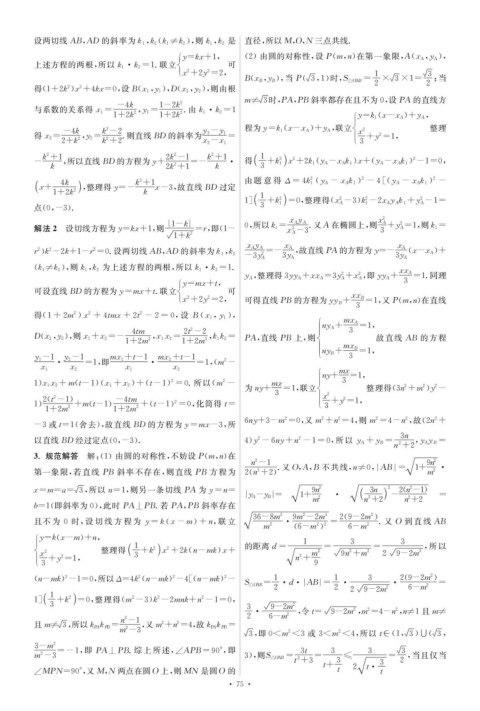 设两切线 AB,AD 的斜率为 k₁,k₂(k₁≠k₂),则 k₁,k₂ 是
上述方程的两根,所以 k₁·k₂=1. 联立{y=kx+1, x²+2y²=2, 可
得(1+2k²)x²+4kx=0,设 B(x₁,y₁),D(x₂,y₂),则由根
与系数的关系得 x₁=-4k/(1+2k²),y₁=(1-2k²)/(1+2k²). 由 k₁·k₂=1
得 x₂=-4k/(2+k²),y₂=(k²-2)/(k²+2),则直线 BD 的斜率为(y₂-y₁)/(x₂-x₁)=
-(k²+1)/k,所以直线 BD 的方程为 y+(2k²-1)/(2k²+1)=-(k²+1)/k·
(x+4k/(1+2k²)),整理得 y=-(k²+1)/k x-3,故直线 BD 过定
点(0,-3).
解法 2 设切线方程为 y=kx+1,则|1-k|/√(1+k²)=r,即(1-
r²)k²-2k+1-r²=0. 设两切线 AB,AD 的斜率为 k₁,k₂
(k₁≠k₂),则 k₁,k₂ 为上述方程的两根,所以 k₁·k₂=1.
可设直线 BD 的方程为 y=mx+t. 联立{y=mx+t, x²+2y²=2, 可
得(1+2m²)x²+4tmx+2t²-2=0,设 B(x₁,y₁),
D(x₂,y₂),则 x₁+x₂=-4tm/(1+2m²),x₁x₂=(2t²-2)/(1+2m²),k₁k₂=
(y₁-1)/x₁·(y₂-1)/x₂=1,即(mx₁+t-1)/x₁·(mx₂+t-1)/x₂=1,(m²-
1)x₁x₂+m(t-1)(x₁+x₂)+(t-1)²=0. 所以(m²-
1)2(t²-1)/(1+2m²)+m(t-1)-4tm/(1+2m²)+(t-1)²=0,化简得 t=
-3 或 t=1(舍去),故直线 BD 的方程为 y=mx-3,所
以直线 BD 经过定点(0,-3).
3. 规范答解 解:(1) 由圆的对称性,不妨设 P(m,n)在
第一象限,若直线 PB 斜率不存在,则直线 PB 方程为
x=m=a=√3,所以 n=1,则另一条切线 PA 为 y=n=
b=1(即斜率为 0),此时 PA⊥PB. 若 PA,PB 斜率存在
且不为 0 时,设切线方程为 y=k(x-m)+n,联立
{y=k(x-m)+n, x²/3+y²=1, 整理得(1/3+k²)x²+2k(n-mk)x+
(n-mk)²-1=0,所以Δ=4k²(n-mk)²-4[(n-mk)²-
1](1/3+k²)=0,整理得(m²-3)k²-2mnk+n²-1=0,
且 m≠√3,所以 kPA kPB=(n²-1)/(m²-3),又 m²+n²=4,故 kPA kPB=
(3-m²)/(m²-3)=-1,即 PA⊥PB. 综上所述,∠APB=90°,即
∠MPN=90°,又 M,N 两点在圆 O 上,则 MN 是圆 O 的
直径,所以 M,O,N 三点共线.
(2) 由圆的对称性,设 P(m,n)在第一象限,A(xA,yA),
B(xB,yB),当 P(√3,1)时,S△OAB=1/2×√3×1=√3/2;当
m≠√3时,PA,PB 斜率都存在且不为 0,设 PA 的直线方
程为 y=k₁(x-xA)+yA,联立{y=k₁(x-xA)+yA, x²/3+y²=1, 整理
得(1/3+k₁²)x²+2k₁(yA-xAk₁)x+(yA-xAk₁)²-1=0,
由题意得 Δ=4k₁²(yA-xAk₁)²-4[(yA-xAk₁)²-
1](1/3+k₁²)=0,整理得(xA²-3)k₁²-2xAyAk₁+yA²-1=
0,所以 k₁=xAyA/(xA²-3). 又 A 在椭圆上,则xA²/3+yA²=1,则 k₁=
xAyA/(-3yA²)=-xA/(3yA),故直线 PA 的方程为 y=-xA/(3yA)(x-xA)+
yA,整理得 3yyA+xxA=3yA²+xA²,即 yyA+xxA/3=1,同理
可得直线 PB 的方程为 yyB+xxB/3=1,又 P(m,n)在直线
PA,直线 PB 上,则{nyA+mxA/3=1, nyB+mxB/3=1, 故直线 AB 的方程
为 ny+mx/3=1,联立{ny+mx/3=1, x²/3+y²=1, 整理得(3n²+m²)y²-
6ny+3-m²=0,又 m²+n²=4,则 m²=4-n²,故(2n²+
4)y²-6ny+n²-1=0,所以 yA+yB=3n/(n²+2),yAyB=
(n²-1)/(2(n²+2)). 又 O,A,B 不共线,n≠0,|AB|=√(1+9n²/m²)·
|yA-yB|=√(1+9n²/m²)·√((3n/(n²+2))²-2(n²-1)/(n²+2))=
√((36-8m²)/m²·(9m²-2m⁴)/(6-m²)²)=2(9-2m²)/(6-m²). 又 O 到直线 AB
的距离 d=1/√(n²+m²/9)=3/√(9n²+m²)=3/(2√(9-2m²)),所以
S△OAB=1/2·d·|AB|=1/2·3/(2√(9-2m²))·2(9-2m²)/(6-m²)=
3/2·√(9-2m²)/(6-m²),令 t=√(9-2m²),m²=4-n²,n≠1 且 m≠
√3,即 0<m²<3 或 3<m²<4,所以 t∈(1,√3)∪(√3,
3),则S△OAB=3t/(t²+3)=3/(t+3/t)≤3/(2√(t·3/t))=√3/2,当且仅当
· 75 ·